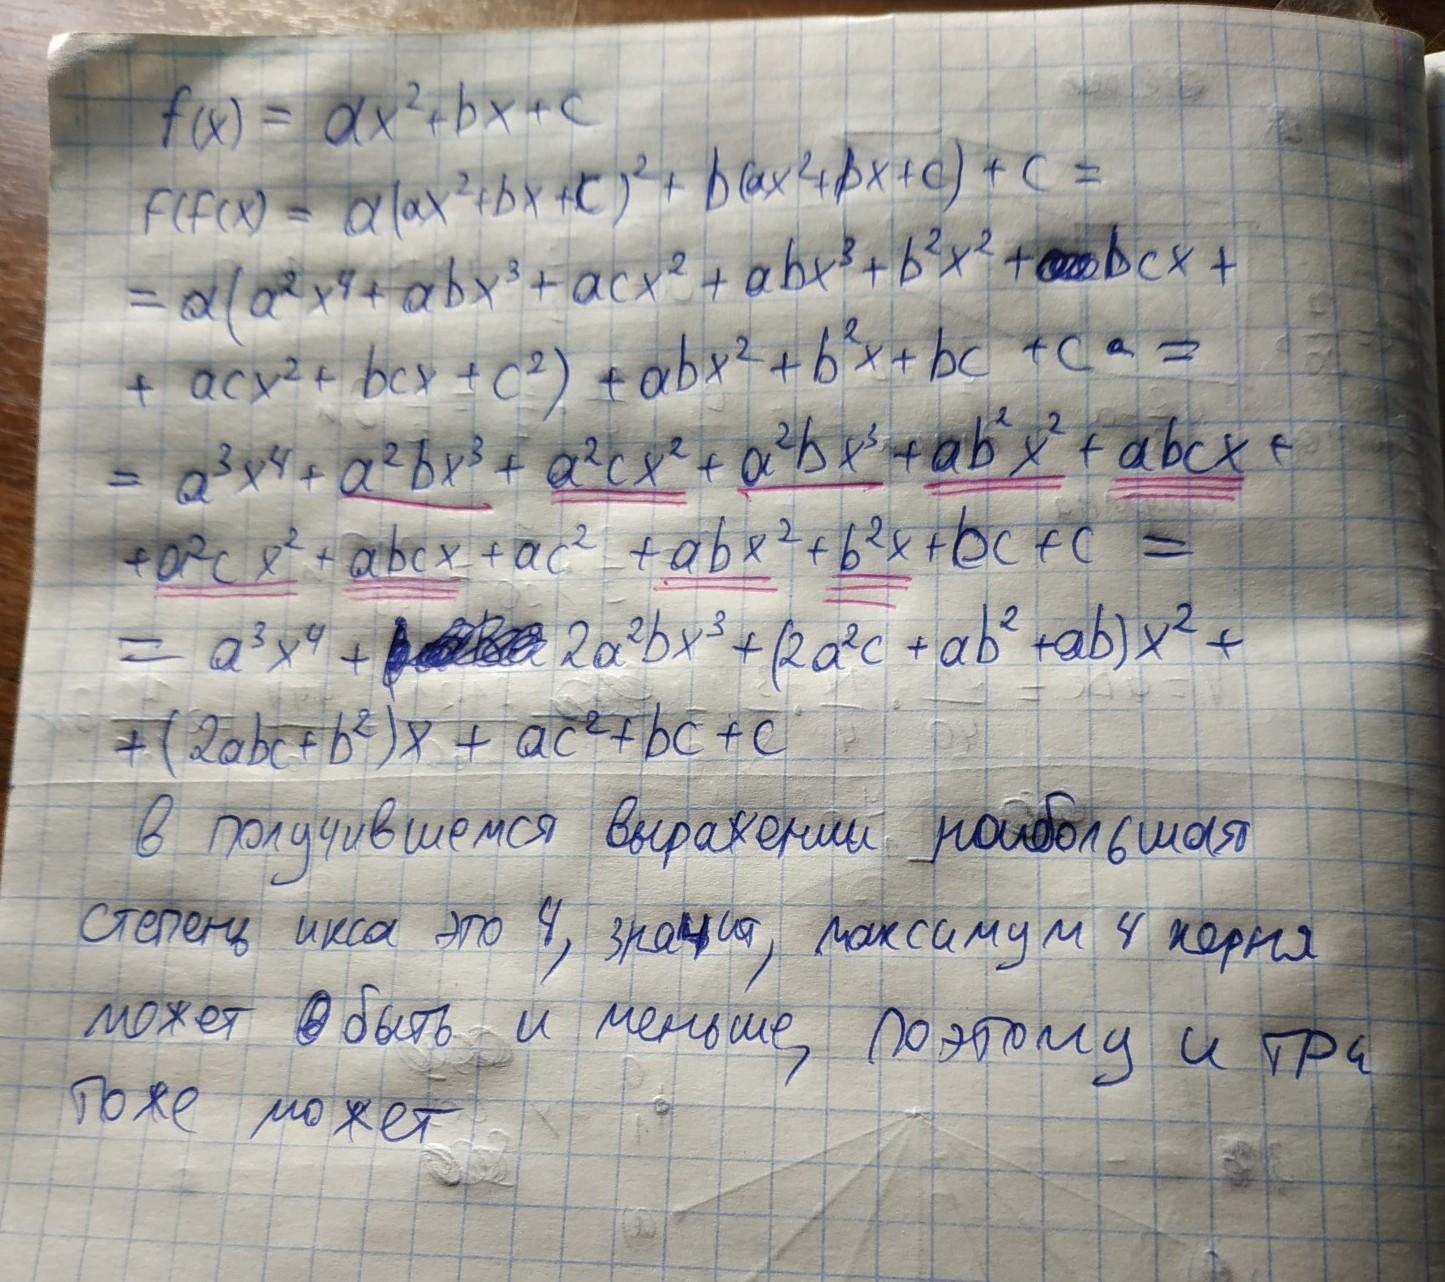 f(x) = ax²+bx+c
f(f(x) = a(ax²+bx+c)²+ b(ax²+bx+c) + c =
= a(a²x⁴+ abx³+ acx² + abx³+ b²x² + bcx +
+ acx²+ bcx +c²) +abx²+b²x+bc +c =
= a³x⁴+ a²bx³+ a²cx²+ a²bx³+ab²x²+ abcx +
+a²cx²+abcx +ac² +abx²+b²x+bc+c =
= a³x⁴+ 2a²bx³+(2a²c +ab²+ab)x²+
+(2abc+b²)x + ac²+bc+c
В получившемся выражении наибольшая
степень икса это 4, значит, максимум 4 корня
может быть и меньше, поэтому и три
тоже может